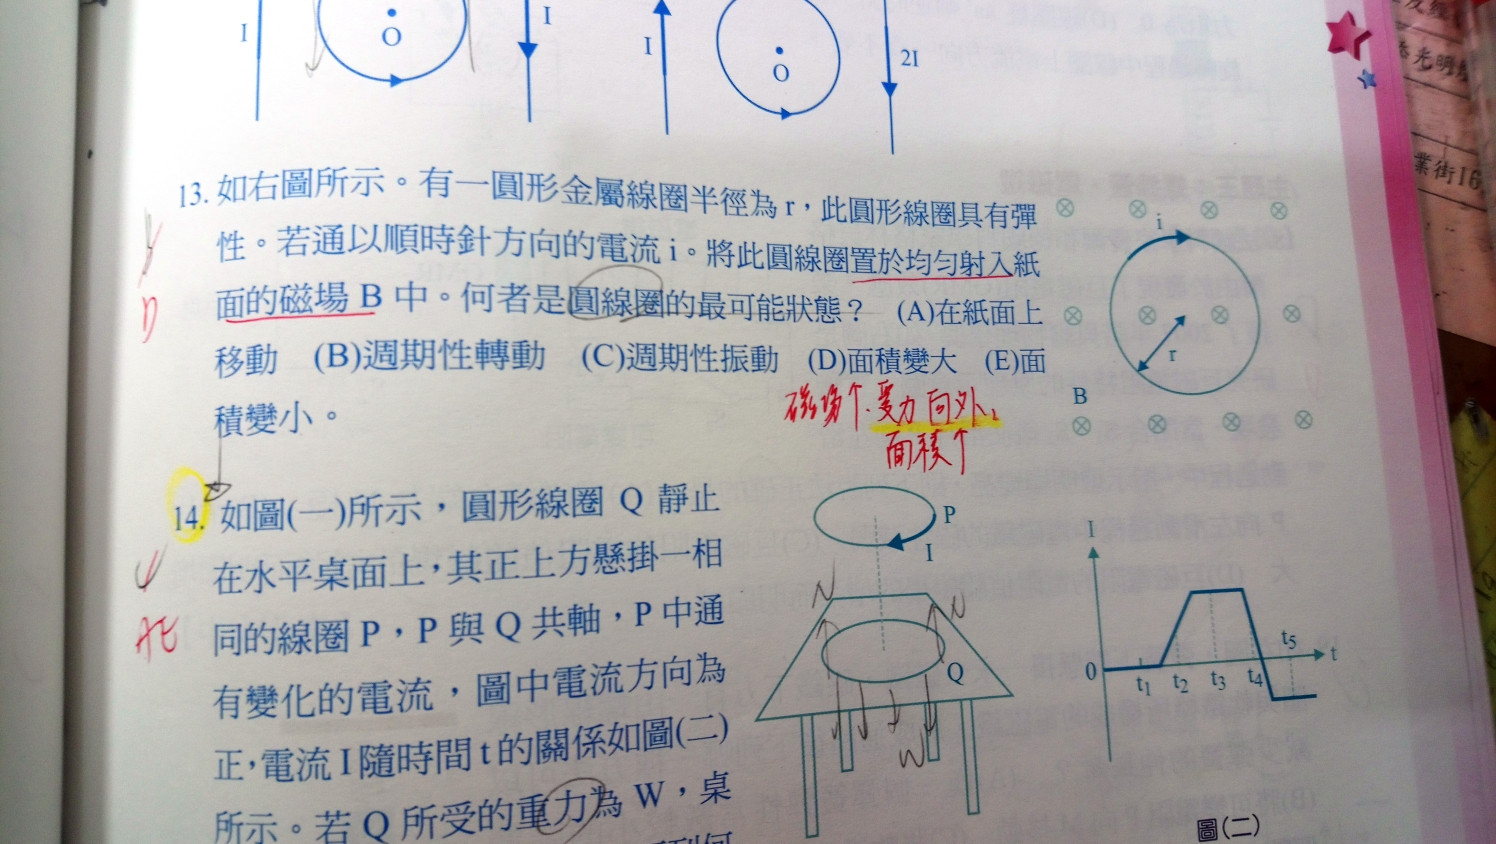 I
O
I
I
O
2I
13. 如右圖所示。有一圓形金屬線圈半徑為 r,此圓形線圈具有彈
性。若通以順時針方向的電流 i。將此圓線圈置於均勻射入紙
面的磁場 B 中。何者是圓線圈的最可能狀態? (A)在紙面上
移動 (B)週期性轉動 (C)週期性振動 (D)面積變大 (E)面
積變小。
D
磁場↑.受力向外,
面積↑
i
r
B
14. 如圖(一)所示,圓形線圈 Q 靜止
在水平桌面上,其正上方懸掛一相
同的線圈 P,P 與 Q 共軸,P 中通
有變化的電流,圖中電流方向為
正,電流 I 隨時間 t 的關係如圖(二)
所示。若 Q 所受的重力為 W,桌
AE
P
I
N
N
Q
W
I
0
t1
t2
t3
t4
t5
t
圖(二)
光明
業街16